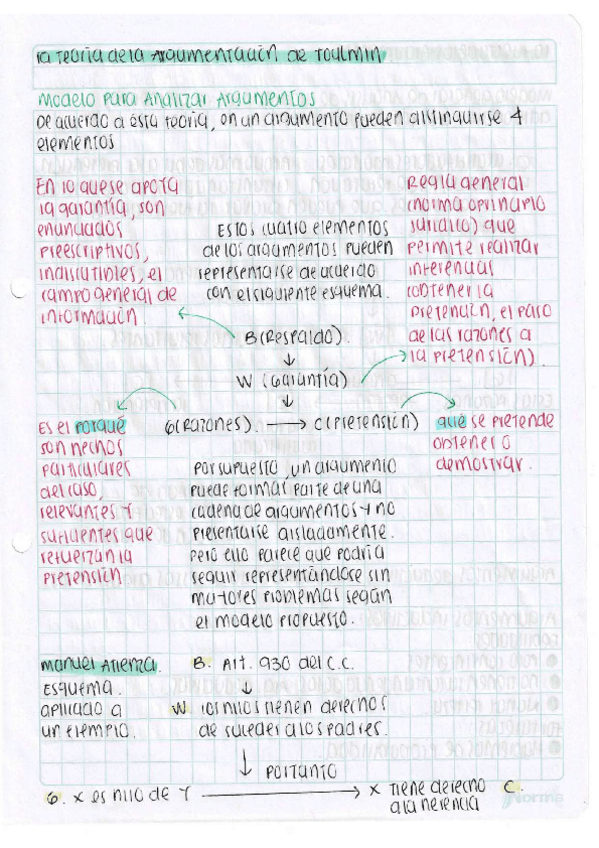 La Teoría de la Argumentación de Toulmin
Modelo Para Analizar Argumentos
De acuerdo a esta teoría, en un argumento pueden distinguirse 4
elementos
En lo que se apoya
la garantía, son
enunciados
preescriptivos,
indiscutibles, el
campo general de
información.
Estos cuatro elementos
de los argumentos pueden
representarse de acuerdo
con el siguiente esquema.
Regla general
(norma o principio
jurídico) que
permite realizar
inferencias
(obtener la
pretención, el paso
de las razones a
la pretensión)
B (Respaldo).
↓
W (Garantía)
↓
G (Razones) → C (Pretensión)
Es el porqué
son hechos
particulares
del caso,
relevantes y
suficientes que
refuerzan la
pretensión
qué se pretende
obtener o
demostrar.
Por supuesto, un argumento
puede formar parte de una
cadena de argumentos y no
presentarse aisladamente.
Pero ello parece que podría
seguir representándose sin
mayores problemas según
el modelo propuesto.
Manuel Atienza.
Esquema
aplicado a
un ejemplo.
B. Art. 930 del C.C.
↓
W los hijos tienen derechos
de suceder a los padres.
↓ Portanto
G. X es hijo de Y → X tiene derecho
a la herencia
C.
Norma